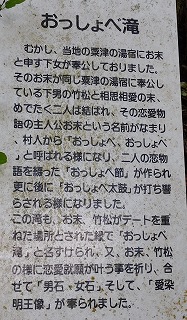 おっしょべ滝
むかし、当地の粟津の湯宿にお末
と申す下女が奉公しておりました。
そのお末が同じ粟津の湯宿に奉公し
ている下男の竹松と相思相愛の末、
めでたく二人は結ばれ、その恋愛物
語の主人公お末という名前がなまり、
村人から「おっしょべ、おっしょべ」
と呼ばれる様になり、二人の恋物
語を綴った「おっしょべ節」が作られ
更に後に「おっしょべ太鼓」が打ち響
らされる様になりました。
この滝も、お末、竹松がデートを重
ねた場所とされた縁で「おっしょべ
滝」と名ずけられ、又、お末、竹松
の様に恋愛就願が叶う事を祈り、合
せて「男石・女石」そして、「愛染
明王像」が奉られました。